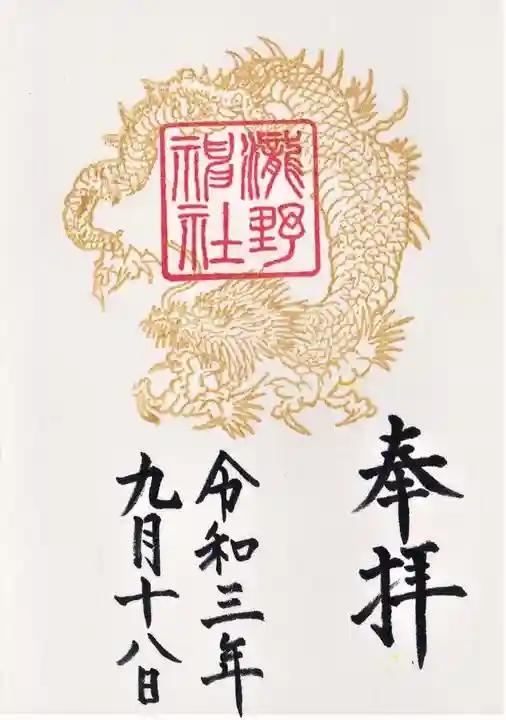 奉拝
瀧野
神社
令和三年
九月十八日